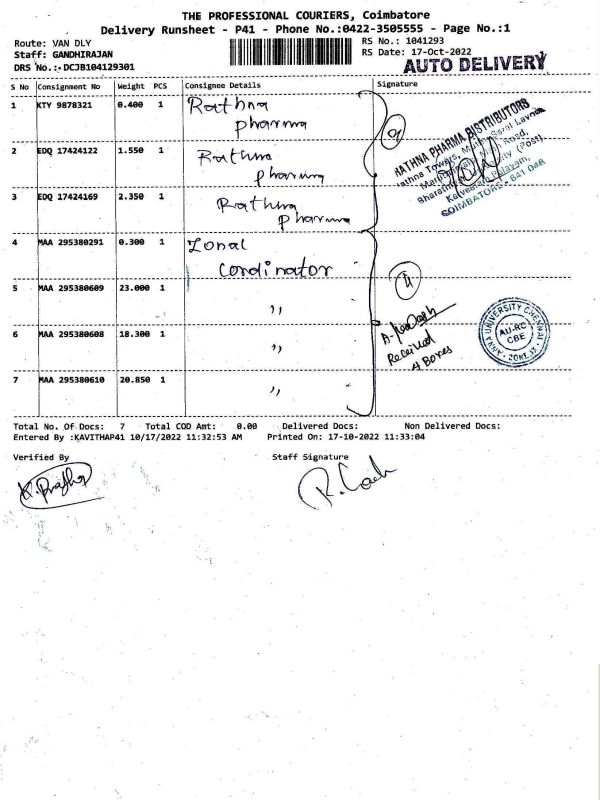 THE PROFESSIONAL COURIERS, Coimbatore
Delivery Runsheet - P41 - Phone No.:0422-3505555 - Page No.:1
Route: VAN DLY
RS No.: 1041293
Staff: GANDHIRAJAN
RS Date: 17-Oct-2022
DRS No.:-DCJB104129301
AUTO DELIVERY
S No Consignment No Weight PCS Consignee Details Signature
1 KTY 9878321 0.400 1 Rathna pharma
2 EDQ 17424122 1.550 1 Rathna pharma
3 EDQ 17424169 2.350 1 Rathna pharma
RATHNA PHARMA DISTRIBUTORS
COIMBATORE - 641 046
4 MAA 295380291 0.300 1 Zonal Cordinator
5 MAA 295380609 23.000 1 ,,
6 MAA 295380608 18.300 1 ,,
7 MAA 295380610 20.850 1 ,,
Received
4 Boxes
ANNA UNIVERSITY CHENNAI
AU-RC
CBE
Total No. Of Docs: 7 Total COD Amt: 0.00 Delivered Docs: Non Delivered Docs:
Entered By :KAVITHAP41 10/17/2022 11:32:53 AM Printed On: 17-10-2022 11:33:04
Verified By Staff Signature